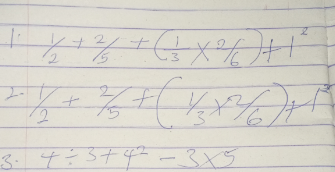 1. 1/2 + 2/5 + (1/3 × 2/6) + 1²
2. 1/2 + 2/5 + (1/3 × 2/6) + 1²
3. 4 ÷ 3 + 4² - 3 × 5